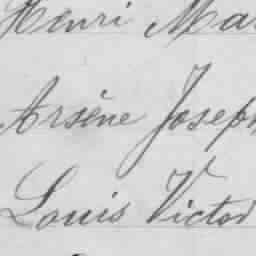 Henri Ma
Arsène Joseph
Louis Victor